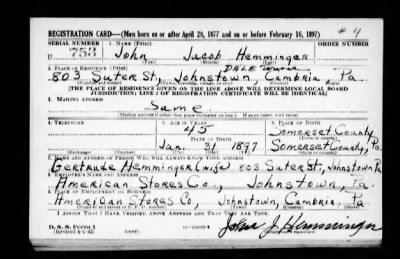 REGISTRATION CARD—(Men born on or after April 28, 1877 and on or before February 16, 1897) #4
SERIAL NUMBER 1. NAME (Print) ORDER NUMBER
753 John Jacob Hemminger
2. PLACE OF RESIDENCE (Print) DALE
803 Suter St, Johnstown, Cambria Pa.
[THE PLACE OF RESIDENCE GIVEN ON THE LINE ABOVE WILL DETERMINE LOCAL BOARD
JURISDICTION; LINE 2 OF REGISTRATION CERTIFICATE WILL BE IDENTICAL]
3. MAILING ADDRESS
Same
4. TELEPHONE 5. AGE IN YEARS PLACE OF BIRTH
45 Somerset County
DATE OF BIRTH
Jan 31 1897 Somerset County, Pa.
7. NAME AND ADDRESS OF PERSON WHO WILL ALWAYS KNOW YOUR ADDRESS
Gertrude Hemminger (wife) 803 Suter St, Johnstown Pa
EMPLOYER'S NAME AND ADDRESS
American Stores Co., Johnstown, Pa.
PLACE OF EMPLOYMENT OR BUSINESS
American Stores Co, Johnstown, Cambria, Pa
I AFFIRM THAT I HAVE VERIFIED ABOVE ANSWERS AND THAT THEY ARE TRUE.
D. S. S. Form 1
(Revised 4-1-42) (over)
John J Hemminger